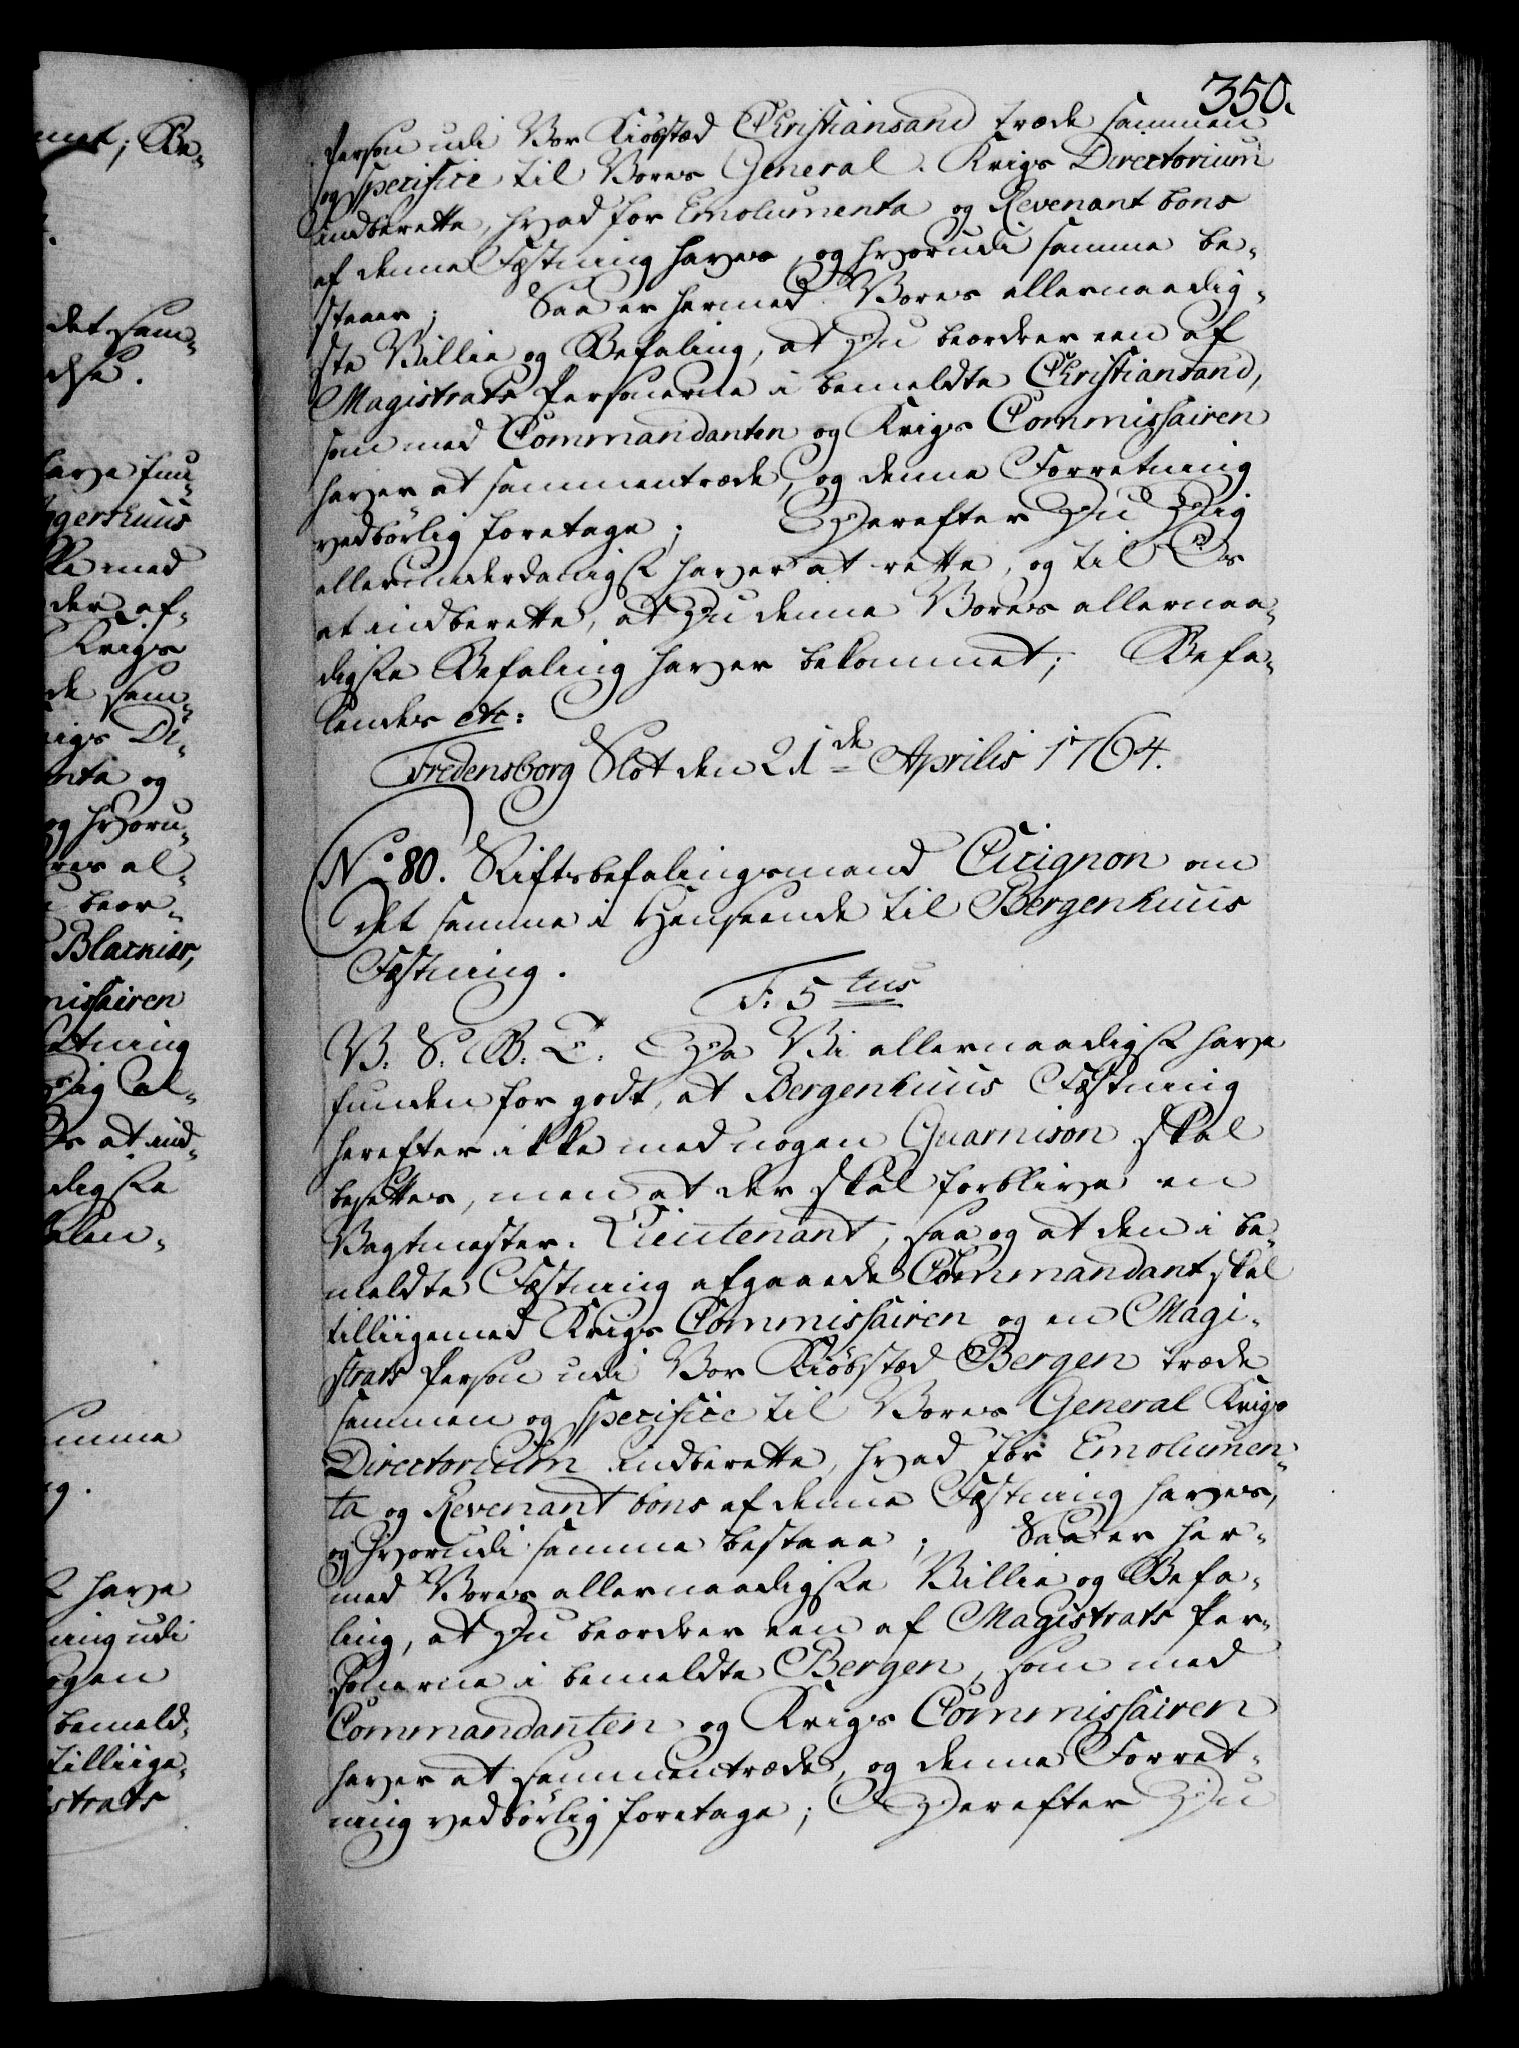 350.
Person udi Vor Kiøbstæd Christiansand træde sammen
og specifice til Vores General-Krigs Directorium
indberette, hvad for Emolumenta og Revenant bons
af denne Fæstning haves, og hvorudi samme be-
staaer; Saa er hermed Vores allernaadig-
ste Villie og Befaling, at Du beordrer een af
Magistrats Personerne i bemeldte Christiansand,
som med Commandanten og Krigs Commissairen
haver at sammentræde, og denne Forretning
vedbørlig foretage; Derefter Du Dig
allerunderdanigst haver at rette, og til Os
at indberette, at Du denne Vores allernaa-
digste Befaling haver bekommet; Befa-
lendes etc:
Fredensborg Slot den 21de Aprilis 1764.
No. 80. Stiftsbefalingsmand Cicignon om
det samme i Henseende til Bergenhuus
Fæstning.
F: 5tus
V. S. G. B. T. Da Vi allernaadigst have
funden for godt, at Bergenhuus Fæstning
herefter ikke med nogen Guarnison skal
besættes, men at der skal forblive en
Vagtmester-Lieutenant, saa og at den i be-
meldte Fæstning afgaaede Commandant skal
tilliigemed Krigs Commissairen og en Magi-
strats Person udi Vor Kiøbstæd Bergen træde
sammen og specifice til Vores General Krigs
Directorium indberette, hvad for Emolumen-
ta og Revenant bons af denne Fæstning haves,
og hvorudi samme bestaae; Saa er her-
med Vores allernaadigste Villie og Befa-
ling, at Du beordrer een af Magistrats Per-
sonerne i bemeldte Bergen, som med
Commandanten og Krigs Commissairen
haver at sammentræde, og denne Forret-
ning vedbørlig foretage; Derefter Du